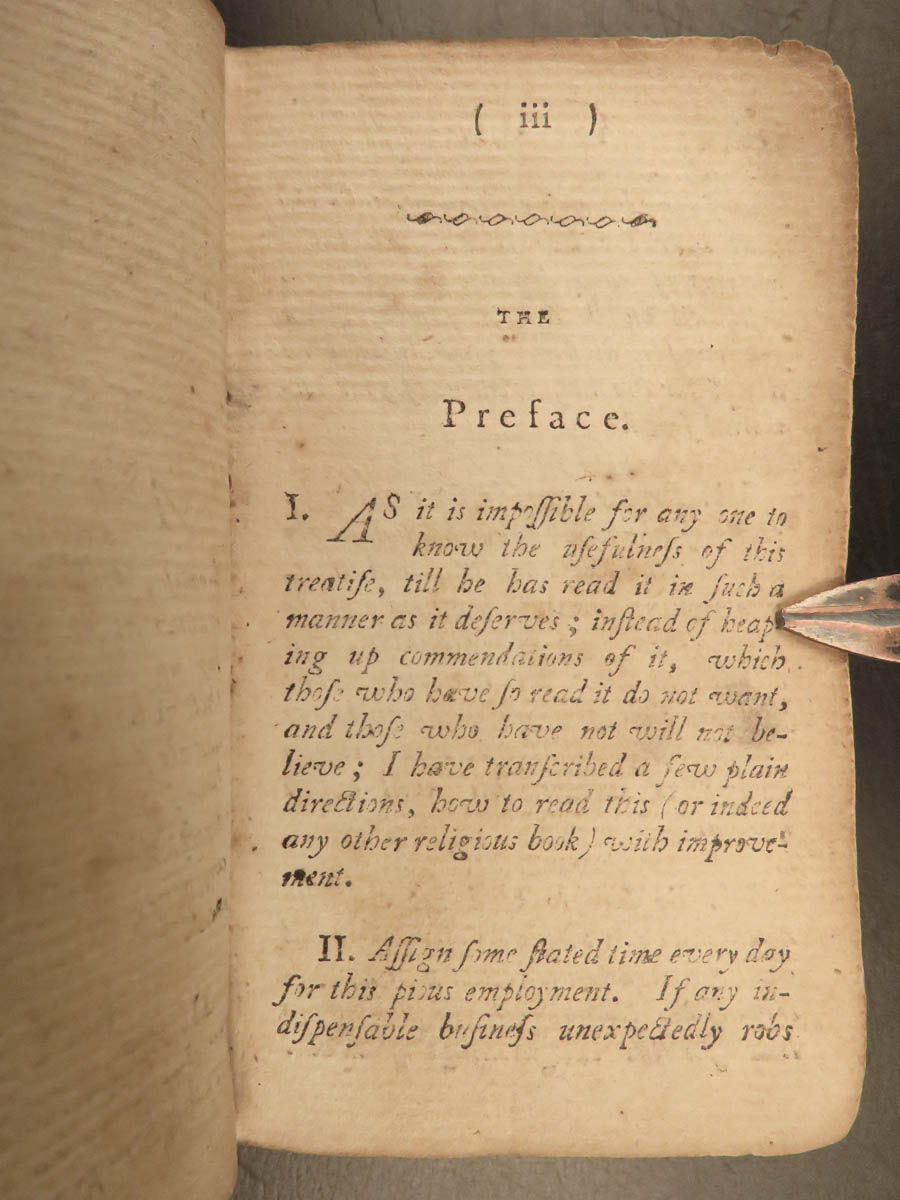 ( iii )
THE
Preface.
I. AS it is impoſſible for any one to
know the uſefulneſs of this
treatiſe, till he has read it in ſuch a
manner as it deſerves ; inſtead of heap-
ing up commendations of it, which
thoſe who have ſo read it do not want,
and thoſe who have not will not be-
lieve ; I have tranſcribed a few plain
directions, how to read this (or indeed
any other religious book) with improve-
ment.
II. Aſſign ſome ſtated time every day
for this pious employment. If any in-
diſpenſable buſineſs unexpectedly robs